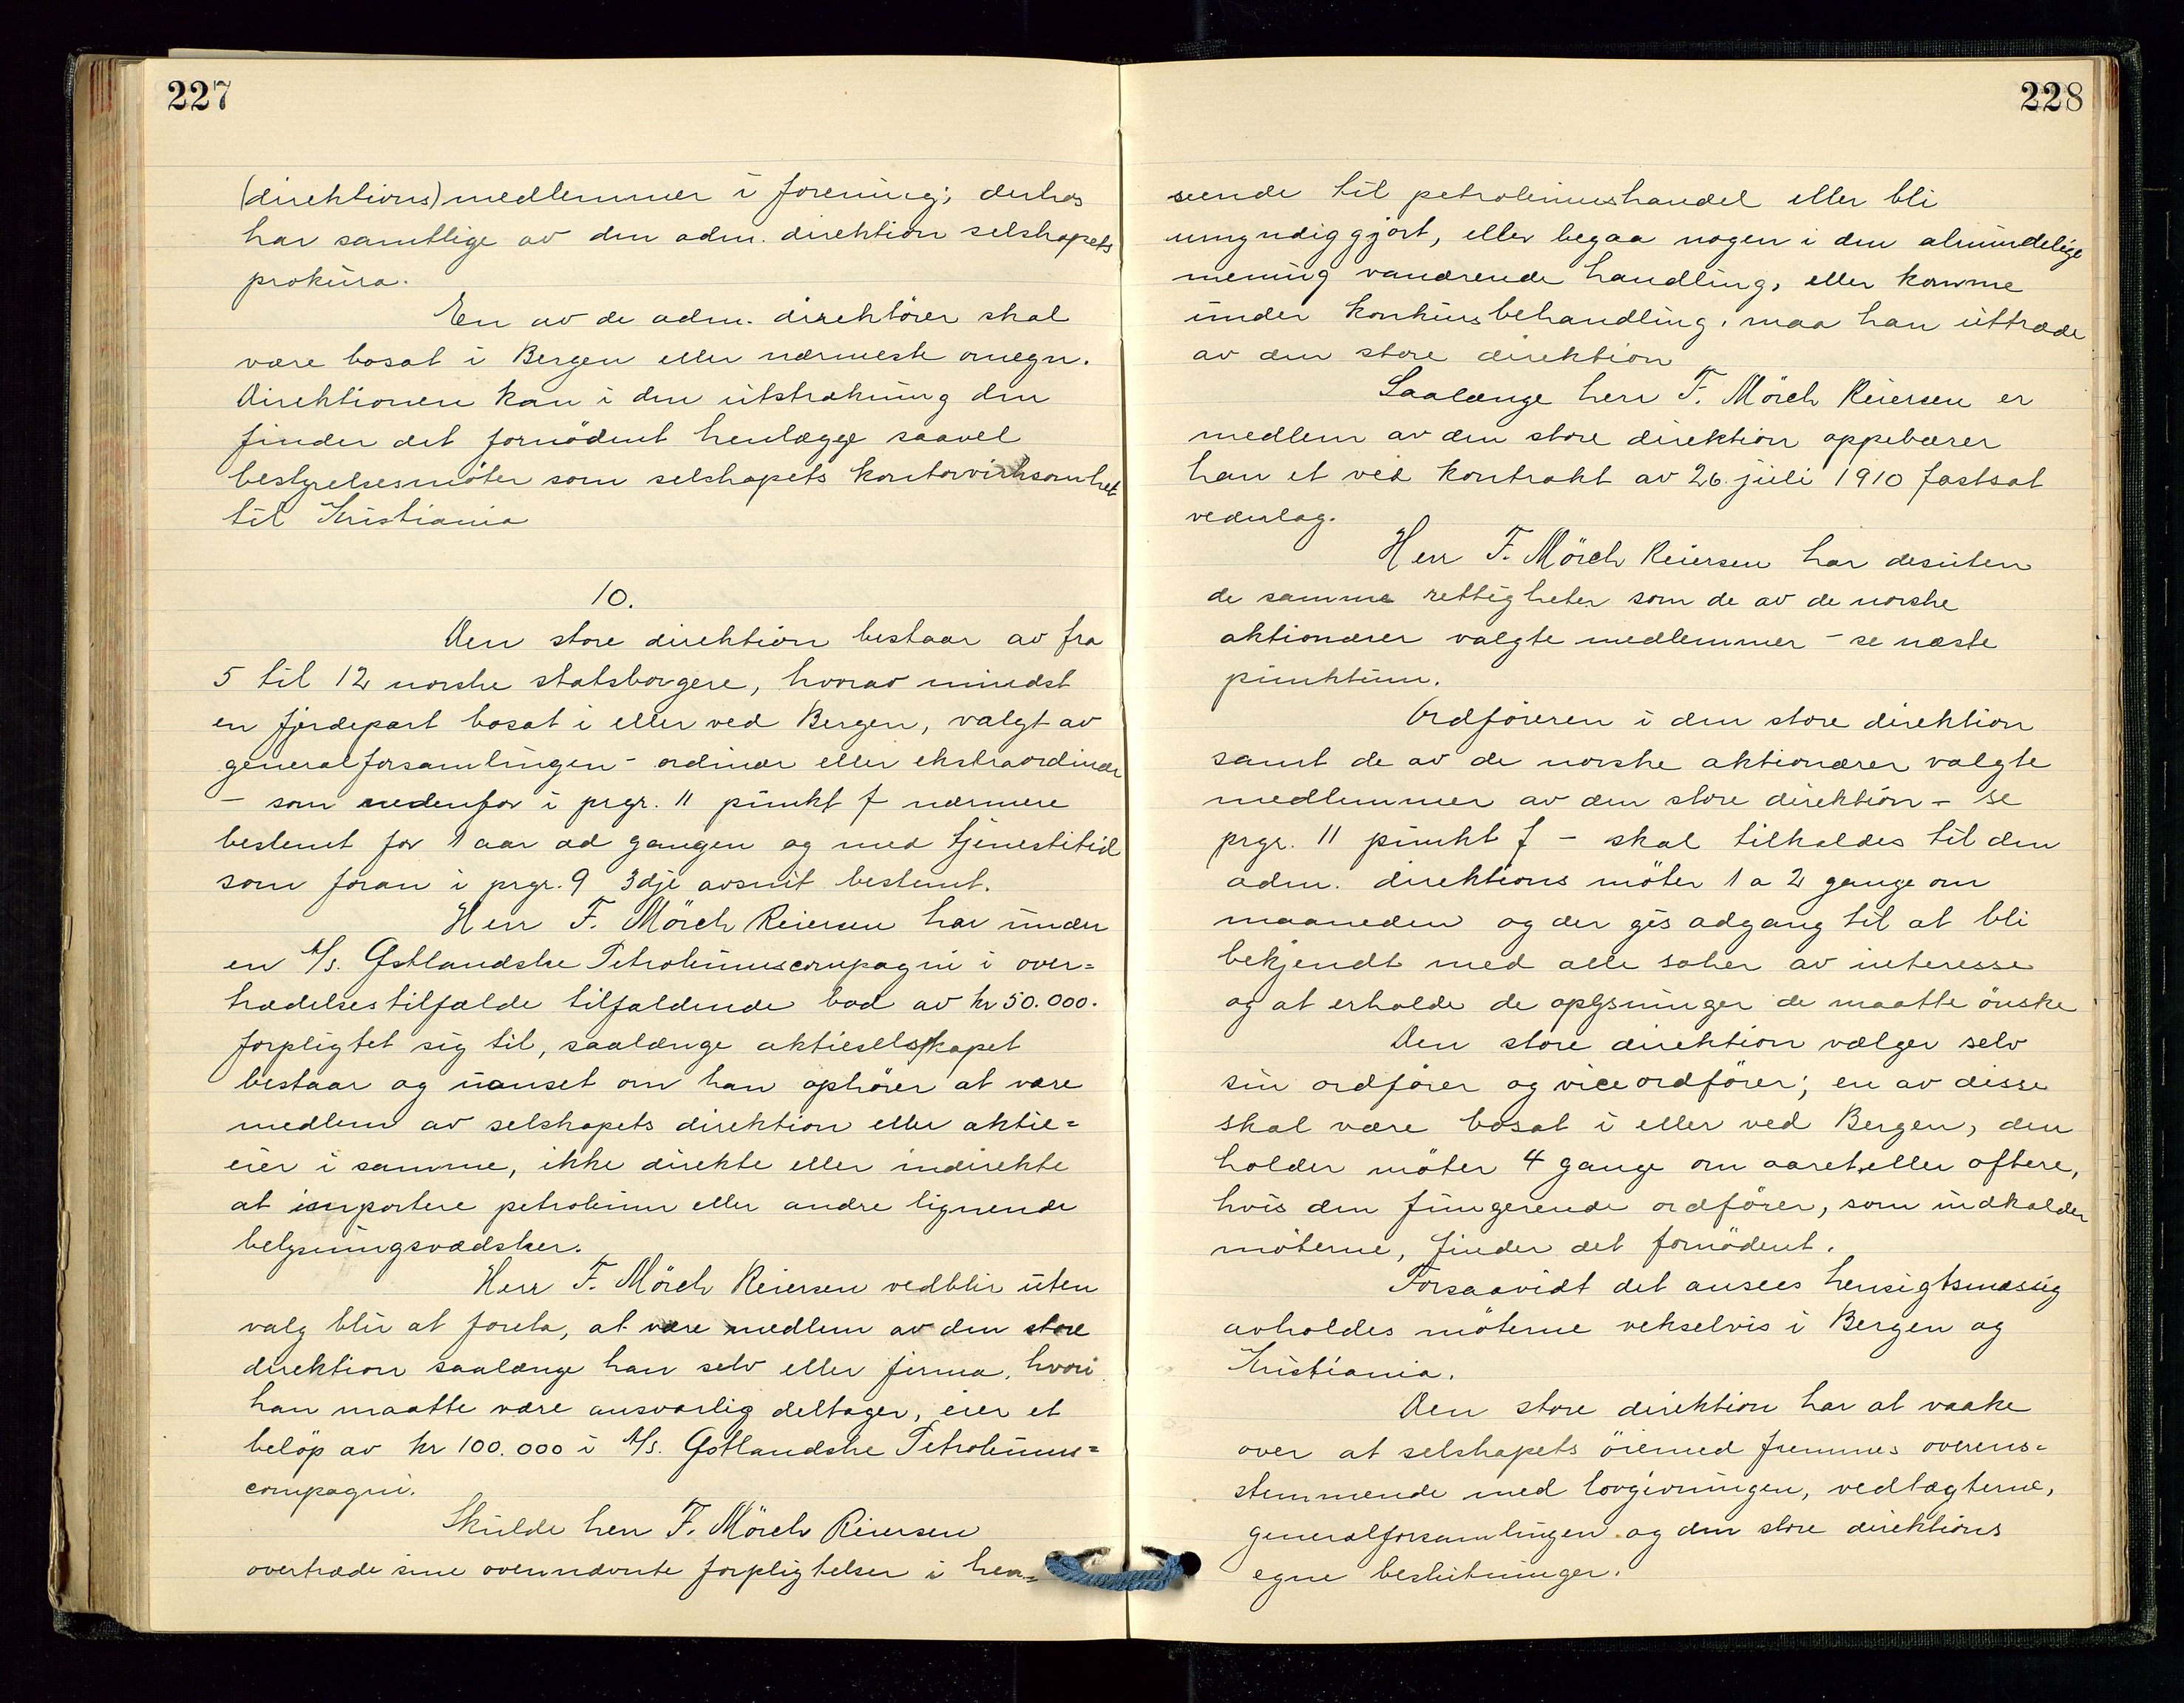 227
(direktions)medlemmer i forening; derhos
har samtlige av den adm. direktion selskapets
prokura.
En av de adm. direktörer skal
være bosat i Bergen eller nærmeste omegn.
Direktionen kan i den utstrækning den
finder det fornödent henlægge saavel
bestyrelsesmöter som selskapets kontorvirksomhet
til Kristiania
10.
Den store direktion bestaar av fra
5 til 12 norske statsborgere, hvorav mindst
en fjerdepart bosat i eller ved Bergen, valgt av
generalforsamlingen - ordinær eller ekstraordinær
- som nedenfor i prgr. 11 punkt f nærmere
bestemt for 1 aar ad gangen og med tjenestetid
som foran i prgr. 9 3dje avsnit bestemt.
Herr F. Mörch Reiersen har under
en A/s. Östlandske Petroleumscompagni i over=
trædelsestilfælde tilfaldende bod av kr 50.000.
forpligtet sig til, saalænge aktieselskapet
bestaar og uanset om han ophörer at være
medlem av selskapets direktion eller aktie=
eier i samme, ikke direkte eller indirekte
at importere petroleum eller andre lignende
belysningsvædsker.
Herr F. Mörch Reiersen vedblir uten
valg blir at foreta, at være medlem av den store
direktion saalænge han selv eller firma, hvori
han maatte være ansvarlig deltager, eier et
belöp av kr 100.000 i A/s. Östlandske Petroleums=
compagni.
Skulde herr F. Mörch Reiersen
overtræde sine ovennævnte forpligtelser i hen=
228
seende til petroleumshandel eller bli
umyndiggjort, eller begaa nogen i den almindelige
mening vanærende handling, eller komme
under konkursbehandling, maa han uttræde
av den store direktion
Saalænge herr F. Mörch Reiersen er
medlem av den store direktion oppebærer
han et ved kontrakt av 26. juli 1910 fastsat
vederlag.
Herr F. Mörch Reiersen har desuten
de samme rettigheter som de av de norske
aktionærer valgte medlemmer - se næste
punktum.
Ordföreren i den store direktion
samt de av de norske aktionærer valgte
medlemmer av den store direktion - se
prgr. 11 punkt f - skal tilkaldes til den
adm. direktions möter 1 a 2 gange om
maaneden og der gis adgang til at bli
bekjendt med alle saker av interesse
og at erholde de oplysninger de maatte önske
Den store direktion vælger selv
sin ordförer og viceordförer; en av disse
skal være bosat i eller ved Bergen, den
holder möter 4 gange om aaret, eller oftere,
hvis den fungerende ordförer, som indkalder
möterne, finder det fornödent.
Forsaavidt det ansees hensigtsmæssig
avholdes möterne vekselvis i Bergen og
Kristiania.
Den store direktion har at vaake
over at selskapets öiemed fremmes overens=
stemmende med lovgivningen, vedtægterne,
generalforsamlingen og den store direktions
egne beslutninger.